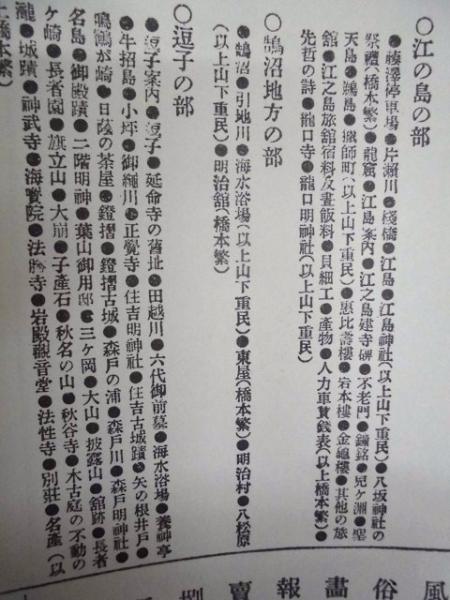 ○江の島の部
●藤澤停車場●片瀬川●棧橋●江島●江島神社(以上山下重民)●八坂神社の
祭禮(橋本繁)●龍窟●江島案内●江之島建寺碑●不老門●鐘銘●兒ケ淵●聖
天島●鵜島●漁師町(以上山下重民)●惠比壽樓●岩本樓●金龜樓●其他の旅
館●江之島旅舘宿料及晝飯料●貝細工●產物●人力車賃錢表(以上橋本繁)●
先哲の詩●龍口寺●龍口明神社(以上山下重民)
○鵠沼地方の部
●鵠沼●引地川●海水浴場(以上山下重民)●東屋(橋本繁)●明治村●八松原
(以上山下重民)●明治舘(橋本繁)
○逗子の部
●逗子案内●逗子●延命寺の舊址●田越川●六代御前墓●海水浴場●養神亭
●牛招島●小坪●御繩川●正覺寺●住吉明神社●住吉古城蹟●矢の根井戸●
鳴鶴が崎●日蔭の茶屋●鐙摺●鐙摺古城●森戸の浦●森戸川●森戸明神社●
名島●御殿蹟●二階明神●葉山御用邸●三ケ岡●大山●披露山●舘跡●長者
ケ崎●長者園●旗立山●大崩●子產石●秋名の山●秋谷寺●木古庭の不動の
瀧●城蹟●神武寺●海寳院●法勝寺●岩殿觀音堂●法性寺●別莊●名產(以
上橋本繁)
風俗畫報賣捌